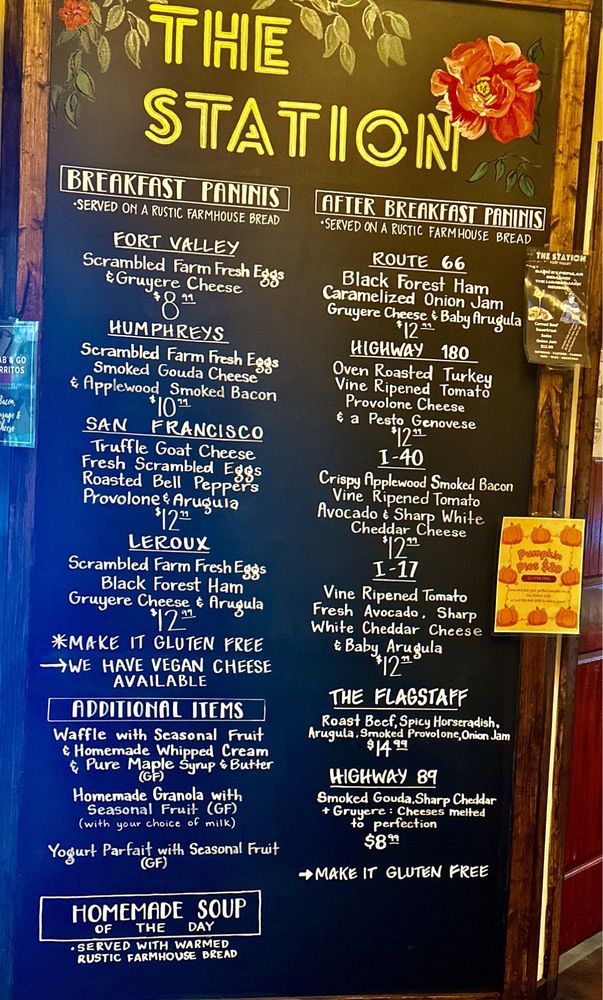 THE
STATION
BREAKFAST PANINIS
•SERVED ON A RUSTIC FARMHOUSE BREAD
FORT VALLEY
Scrambled Farm Fresh Eggs
& Gruyere Cheese
$8.99
HUMPHREYS
Scrambled Farm Fresh Eggs
Smoked Gouda Cheese
& Applewood Smoked Bacon
$10.99
SAN FRANCISCO
Truffle Goat Cheese
Fresh Scrambled Eggs
Roasted Bell Peppers
Provolone & Arugula
$12.99
LEROUX
Scrambled Farm Fresh Eggs
Black Forest Ham
Gruyere Cheese & Arugula
$12.99
*MAKE IT GLUTEN FREE
→WE HAVE VEGAN CHEESE
AVAILABLE
ADDITIONAL ITEMS
Waffle with Seasonal Fruit
& Homemade Whipped Cream
& Pure Maple Syrup & Butter
(GF)
Homemade Granola with
Seasonal Fruit (GF)
(with your choice of milk)
Yogurt Parfait with Seasonal Fruit
(GF)
HOMEMADE SOUP
OF THE DAY
•SERVED WITH WARMED
RUSTIC FARMHOUSE BREAD
AFTER BREAKFAST PANINIS
•SERVED ON A RUSTIC FARMHOUSE BREAD
ROUTE 66
Black Forest Ham
Caramelized Onion Jam
Gruyere Cheese & Baby Arugula
$12.99
HIGHWAY 180
Oven Roasted Turkey
Vine Ripened Tomato
Provolone Cheese
& a Pesto Genovese
$12.99
I-40
Crispy Applewood Smoked Bacon
Vine Ripened Tomato
Avocado & Sharp White
Cheddar Cheese
$12.99
I-17
Vine Ripened Tomato
Fresh Avocado, Sharp
White Cheddar Cheese
& Baby Arugula
$12.99
THE FLAGSTAFF
Roast Beef, Spicy Horseradish,
Arugula, Smoked Provolone, Onion Jam
$14.99
HIGHWAY 89
Smoked Gouda, Sharp Cheddar
+ Gruyere: Cheeses melted
to perfection
$8.99
→MAKE IT GLUTEN FREE
THE STATION
FORT VALLEY
Corned Beef
Sauerkraut
Swiss
Onion Jam
Pumpkin
Pies $30
GLUTEN FREE
& GO
Bacon,
Cheese